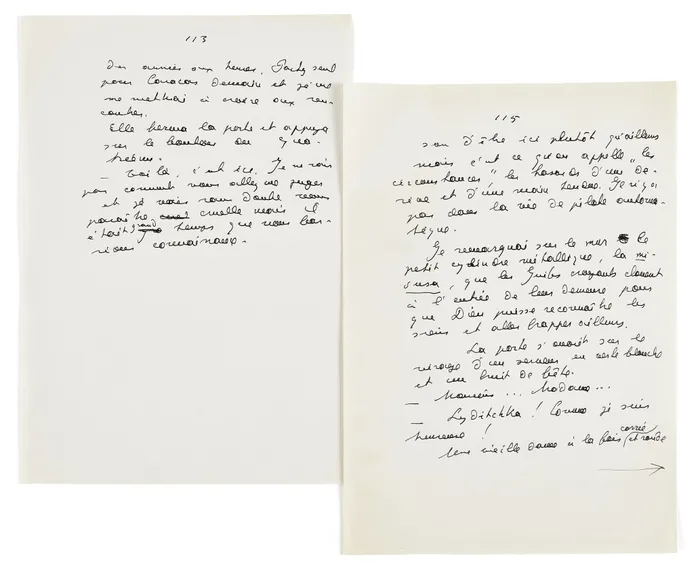 113
des années aux heures. Partez seul
pour Caracas demain et je me
me mettrai à croire aux ren-
contres.
Elle ferma la porte et appuya
sur le bouton du qua-
trième.
— Voilà, c'est ici. Je ne sais
pas comment vous allez me juger
et je vais sans doute vous
paraître cruelle mais il
était grand temps que nous fas-
sions connaissance.
115
son d'être ici plutôt qu'ailleurs
mais c'est ce qu'on appelle "les
circonstances" les hasards d'une dé-
rive et d'une main tendue. Il n'y a
pas dans la vie de pilote automa-
tique.
Je remarquai sur le mur le
petit cylindre métallique, la mi-
susa, que les Juifs croyants clouent
à l'entrée de leur demeure pour
que Dieu puisse reconnaître les
siens et aller frapper ailleurs.
La porte s'ouvrit sur le
visage d'un serveur en veste blanche
et un bruit de fête.
— Monsieur... Madame...
— Lyditchka! Comme je suis
heureuse!
Une vieille dame à la fois carrée et ronde